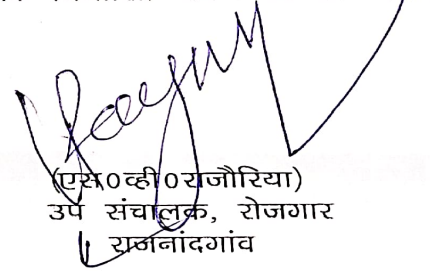 (एस०व्ही०राजौरिया)
उप संचालक, रोजगार
राजनांदगांव